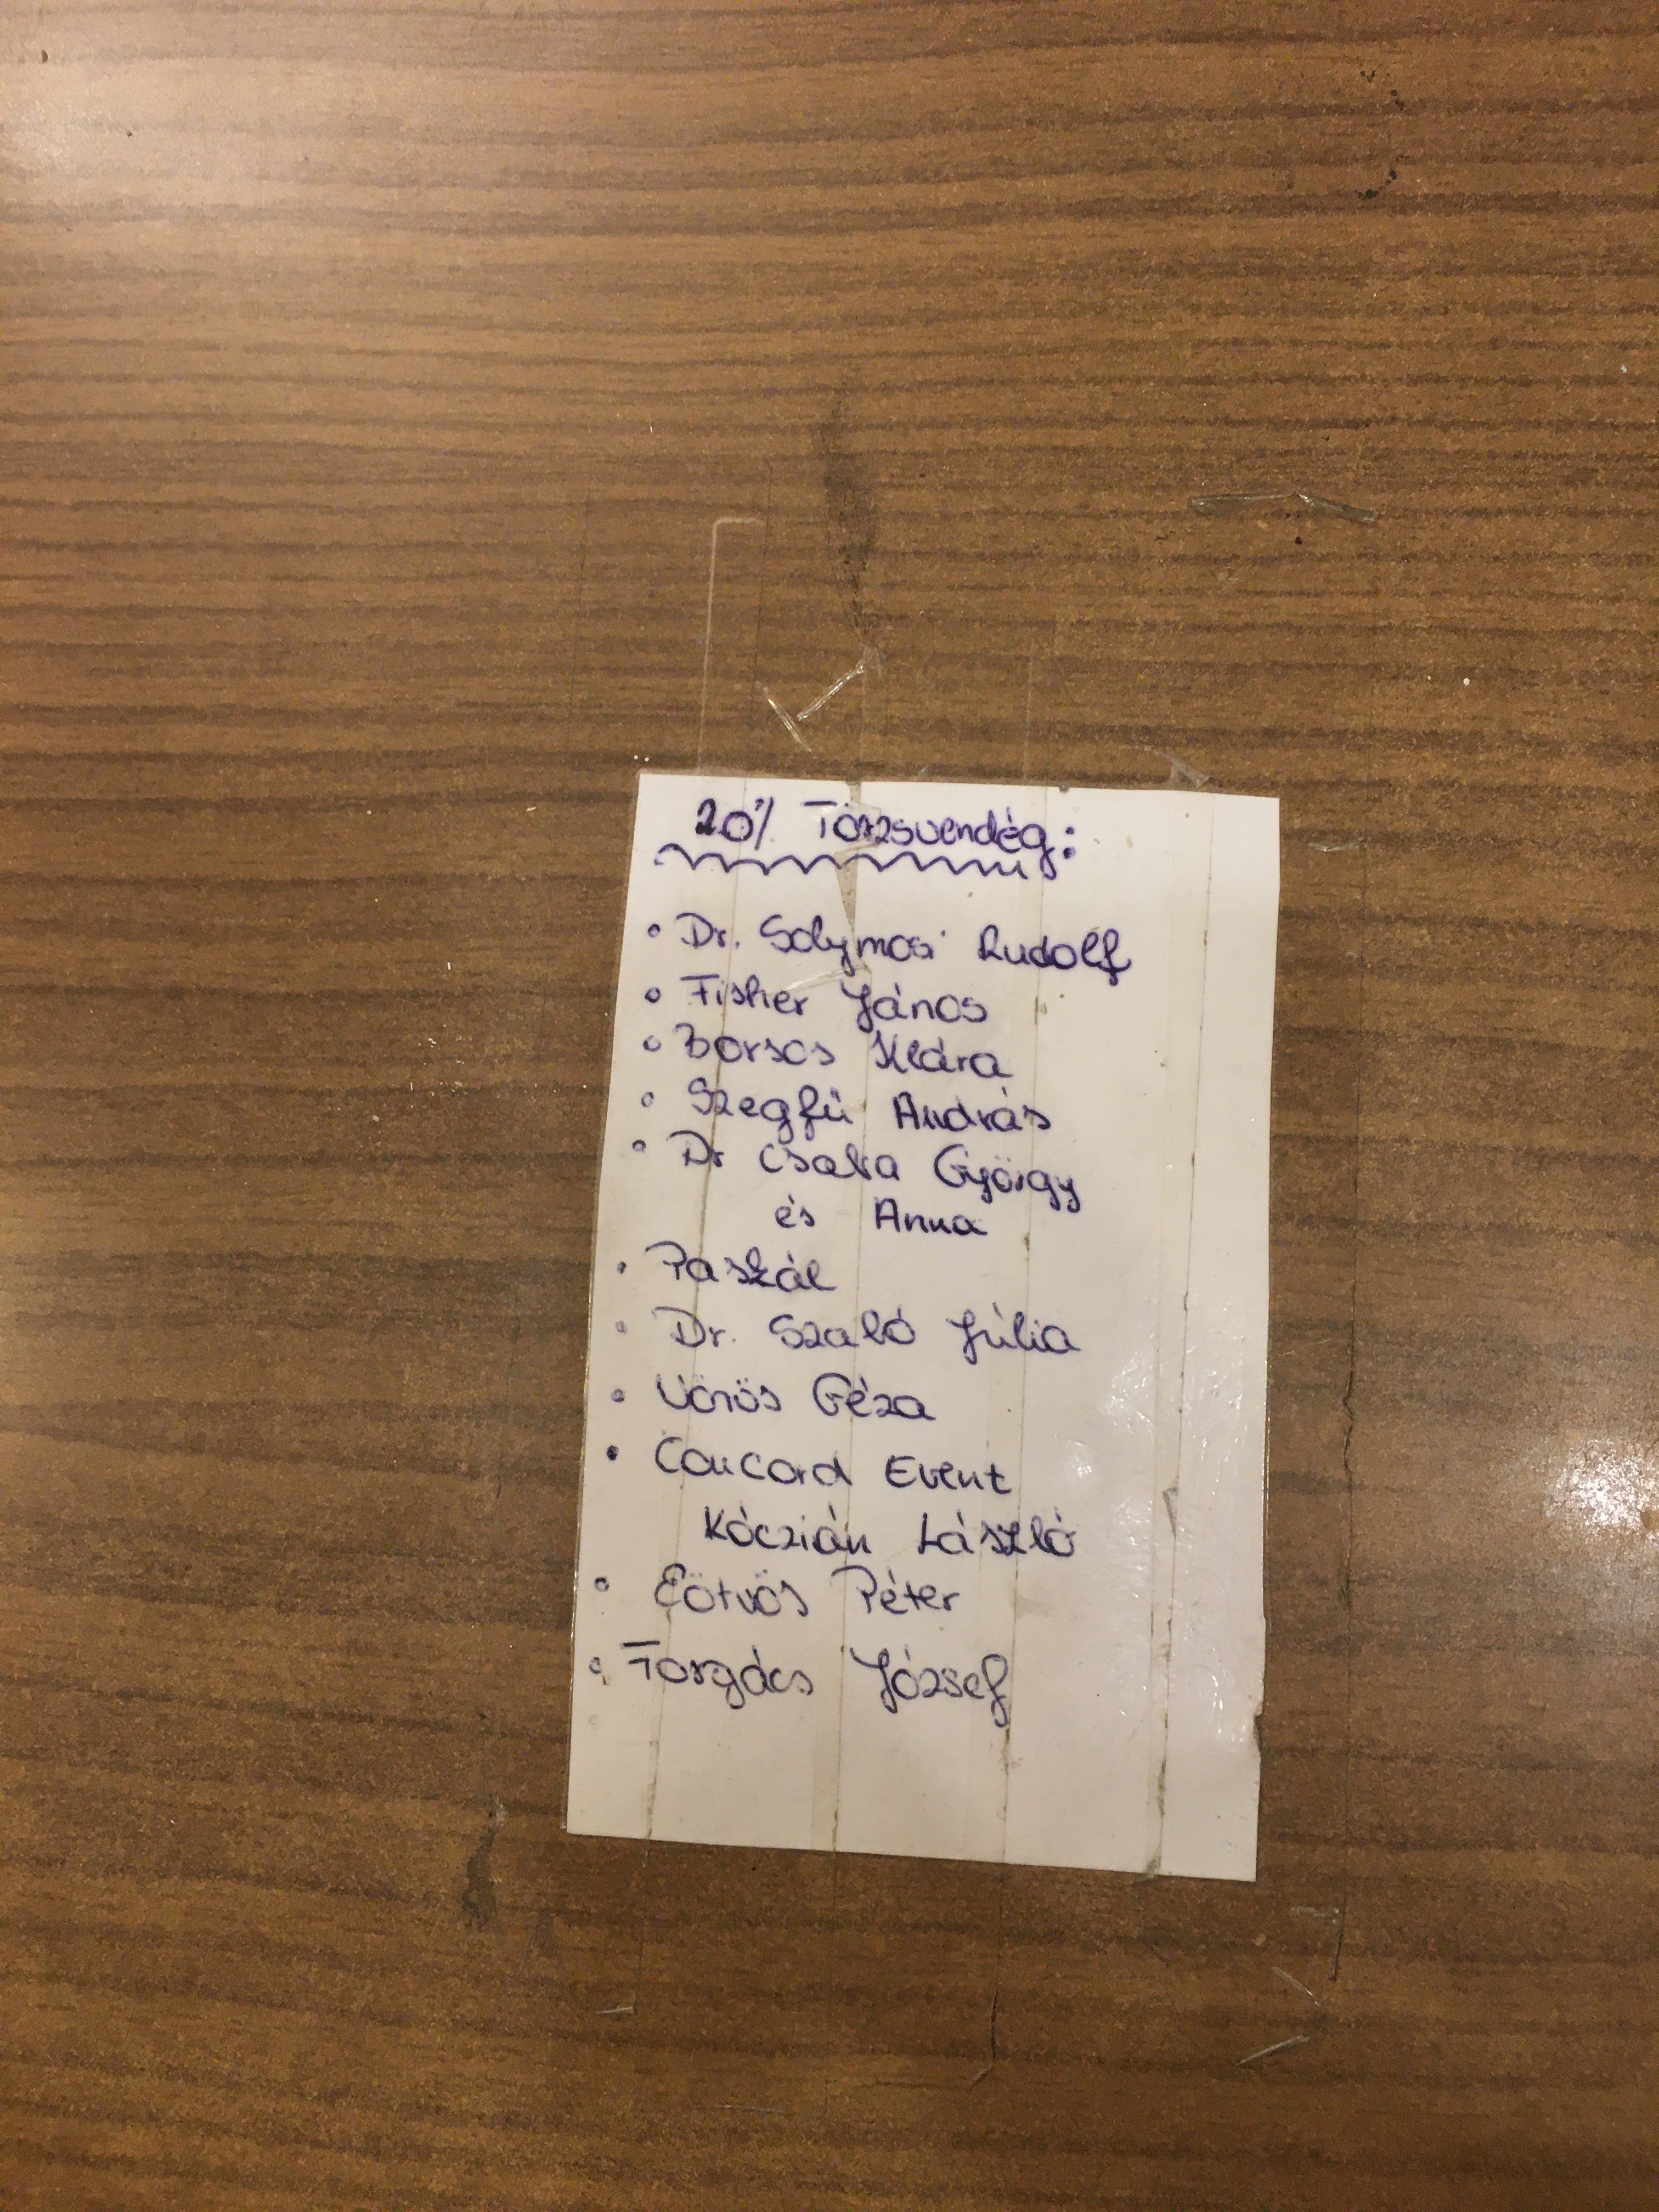 20% Törzsvendég:
• Dr. Solymosi Rudolf
• Fisher János
• Borsos Klára
• Szegfű András
• Dr Csaba György
és Anna
• Paszkál
• Dr. Szabó Júlia
• Vörös Géza
• Concord Event
Kóczián László
• Eötvös Péter
• Forgács József